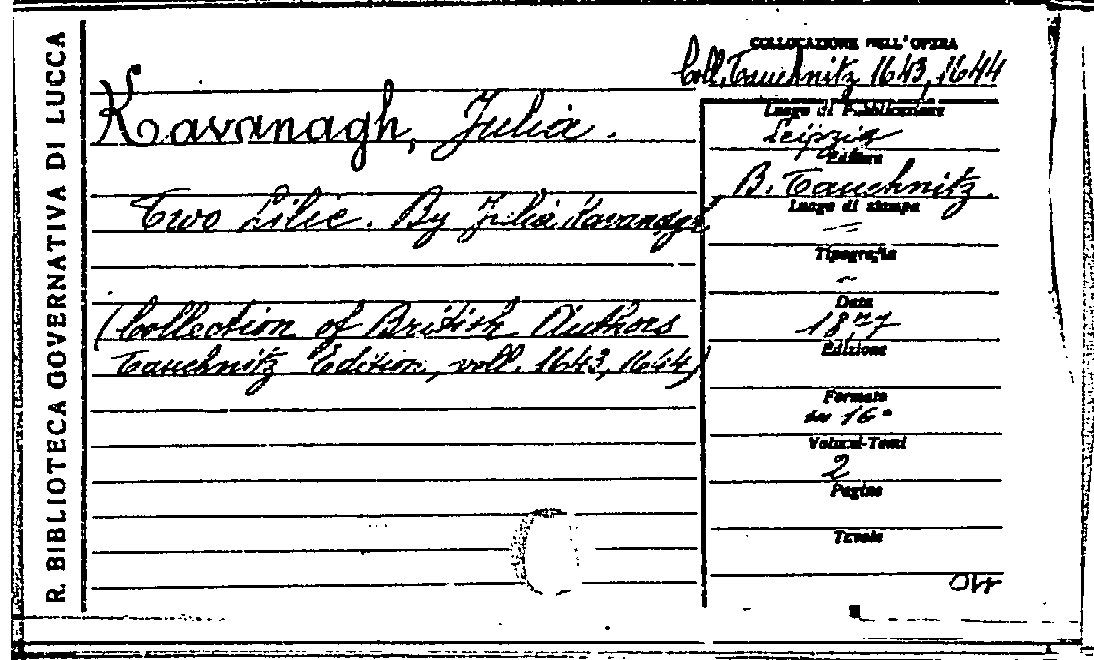 R. BIBLIOTECA GOVERNATIVA DI LUCCA
COLLOCAZIONE DELL'OPERA
Coll. Tauchnitz 1643, 1644
Kavanagh, Julia.
Two Lilie. By Julia Kavanagh
(Collection of British Authors
Tauchnitz Edition, voll. 1643, 1644)
Luogo di Pubblicazione
Leipzig
Editore
B. Tauchnitz.
Luogo di stampa
Tipografia
Data
1877
Edizione
Formato
in 16°
Volumi-Tomi
2
Pagine
Tavole